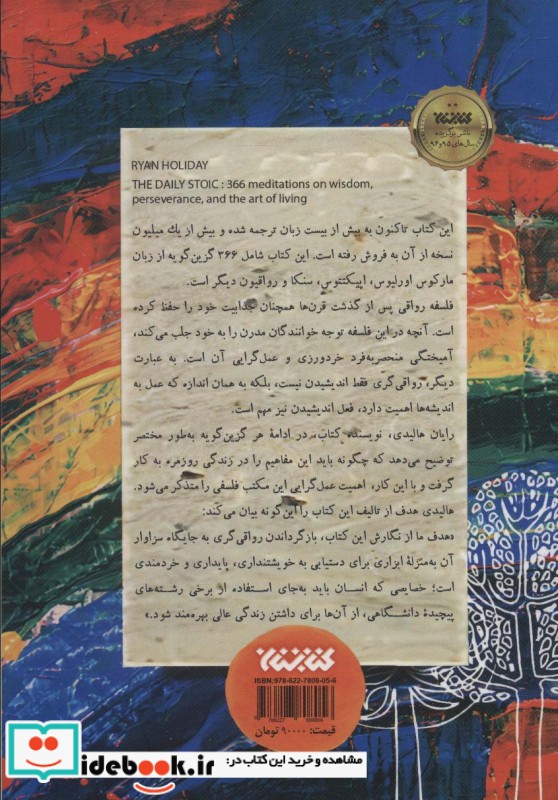 کتیبه پارسی
ناشر برگزیده
سال‌های ۹۵ و ۹۶
RYAN HOLIDAY
THE DAILY STOIC : 366 meditations on wisdom,
perseverance, and the art of living
این کتاب تاکنون به بیش از بیست زبان ترجمه شده و بیش از یك میلیون
نسخه از آن به فروش رفته است. این کتاب شامل ۳۶۶ گزین‌گویه از زبان
مارکوس اورلیوس، اپیکتتوس، سنکا و رواقیون دیگر است.
فلسفه رواقی پس از گذشت قرن‌ها همچنان جذابیت خود را حفظ کرده
است. آنچه در این فلسفه توجه خوانندگان مدرن را به خود جلب می‌کند،
آمیختگی منحصربه‌فرد خردورزی و عمل‌گرایی آن است. به عبارت
دیگر، رواقی‌گری فقط اندیشیدن نیست، بلکه به همان اندازه که عمل به
اندیشه‌ها اهمیت دارد، فعل اندیشیدن نیز مهم است.
رایان هالیدی، نویسنده کتاب، در ادامهٔ هر گزین‌گویه به‌طور مختصر
توضیح می‌دهد که چگونه باید این مفاهیم را در زندگی روزمره به کار
گرفت و با این کار، اهمیت عمل‌گرایی این مکتب فلسفی را متذکر می‌شود.
هالیدی هدف از تالیف این کتاب را این‌گونه بیان می‌کند:
«هدف ما از نگارش این کتاب، بازگرداندن رواقی‌گری به جایگاه سزاوار
آن به‌منزلهٔ ابزاری برای دستیابی به خویشتنداری، پایداری و خردمندی
است؛ خصایصی که انسان باید به‌جای استفاده از برخی رشته‌های
پیچیدهٔ دانشگاهی، از آن‌ها برای داشتن زندگی عالی بهره‌مند شود.»
ISBN: 978-622-7808-05-6
قیمت: ۹۰۰۰۰ تومان
مشاهده و خرید این کتاب در:
idebook.ir